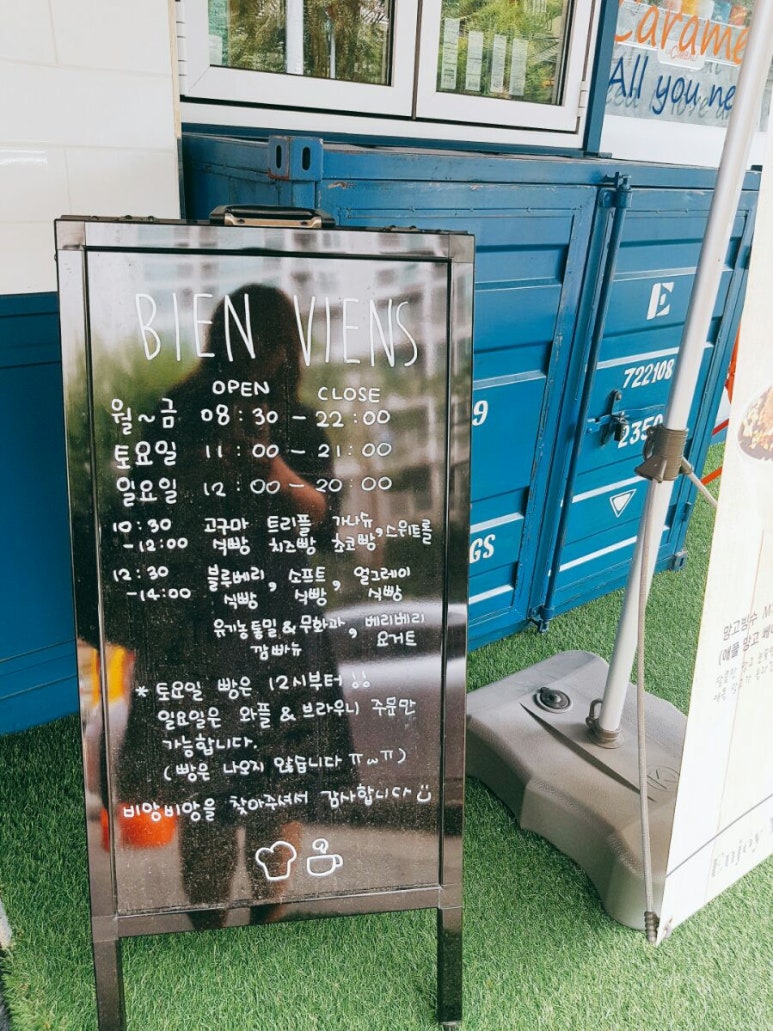 BIEN VIENS
OPEN CLOSE
월~금 08:30 - 22:00
토요일 11:00 - 21:00
일요일 12:00 - 20:00
10:30 고구마 트리플 가나슈, 스위트롤
-12:00 식빵 치즈빵 초코빵
12:30 블루베리, 소프트, 얼그레이
-14:00 식빵 식빵 식빵
유기농통밀&무화과, 베리베리
깜빠뉴 요거트
*토요일 빵은 12시부터!!
일요일은 와플 & 브라우니 주문만
가능합니다.
(빵은 나오지 않습니다 ㅠ~ㅠ)
비앙비앙을 찾아주셔서 감사합니다
Caramel
All you ne
E
722108
2350
9
GS
망고빙수 M
(애플 망고 베
Enjoy